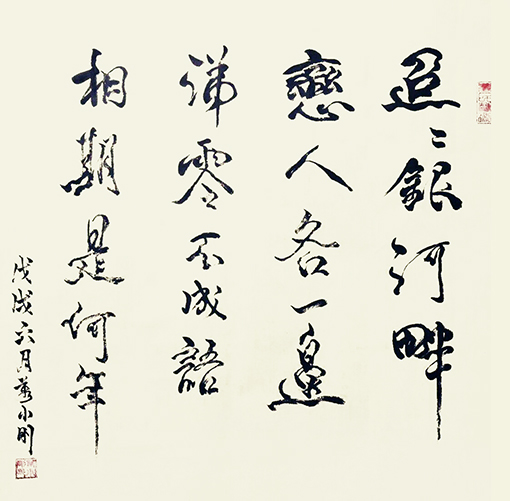 迢〻銀河畔
戀人各一邊
涕零不成語
相期是何年
戊戌六月小刚